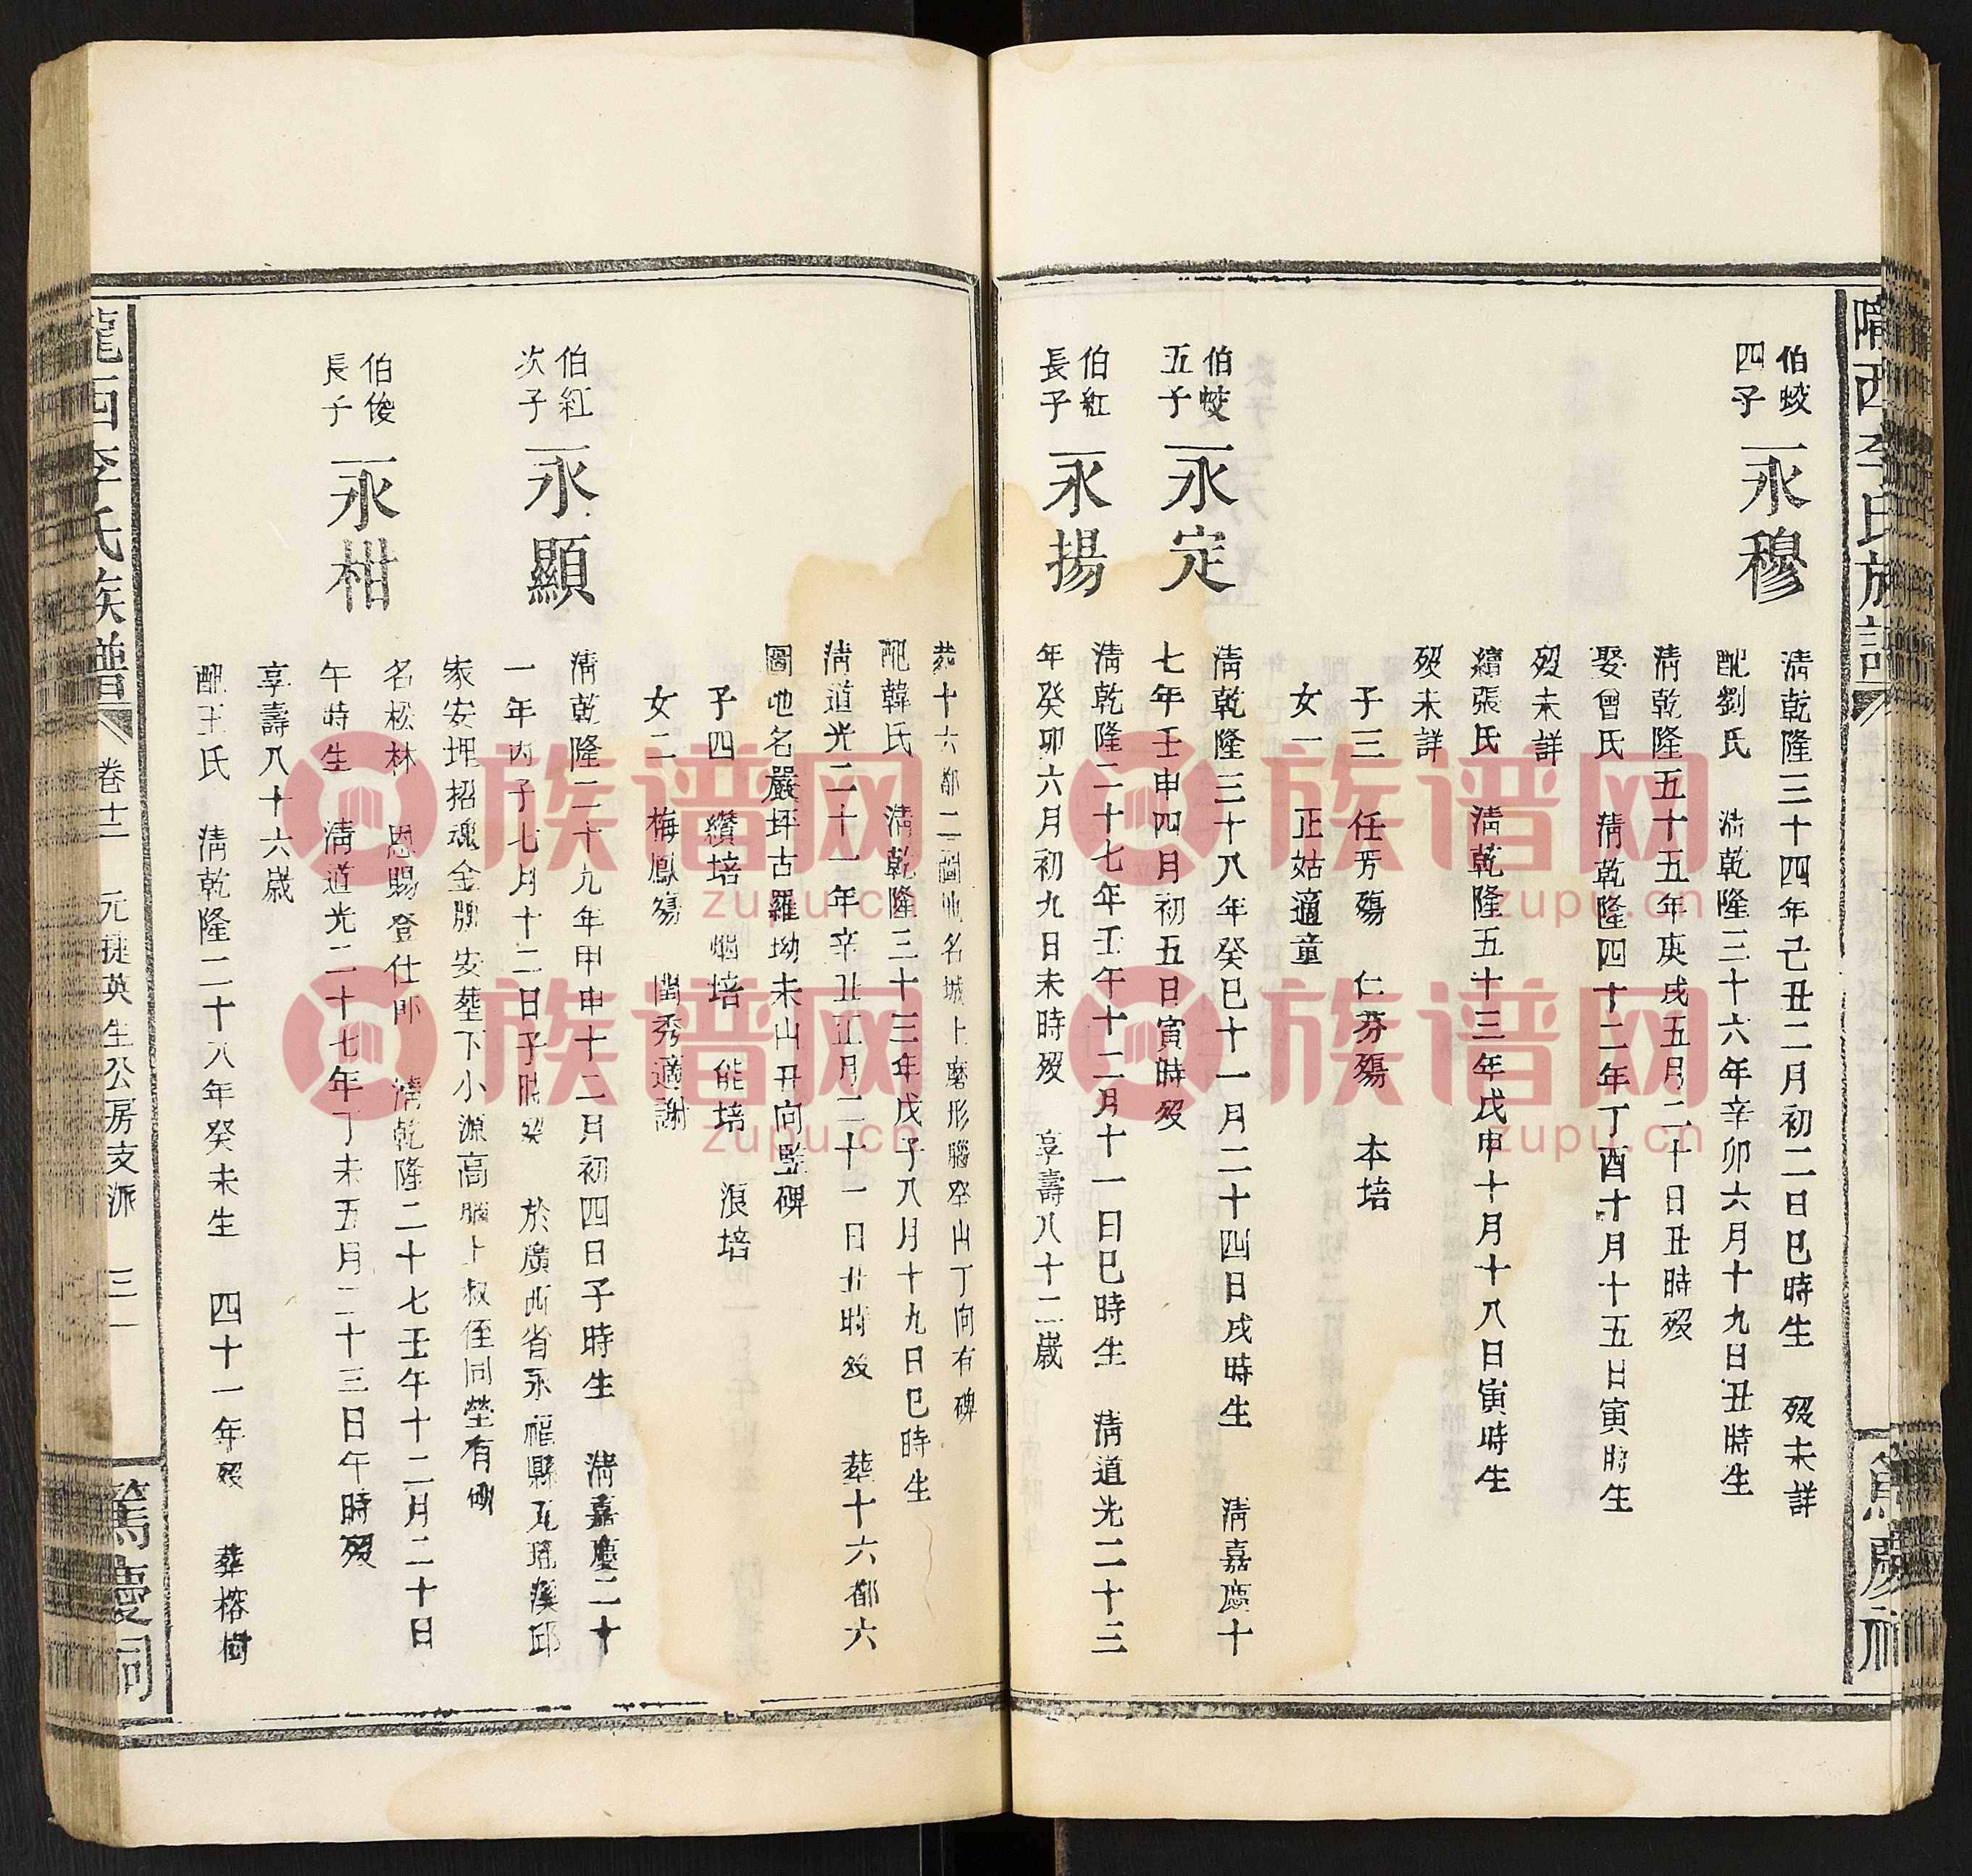 隴西李氏族譜
篤慶祠
伯蛟
四子
永穆
清乾隆三十四年己丑二月初二日巳時生 歿未詳
配劉氏 清乾隆三十六年辛卯六月十九日丑時生
清乾隆五十五年庚戌五月二十日丑時歿
娶曾氏 清乾隆四十二年丁酉十月十五日寅時生
歿未詳
續張氏 清乾隆五十三年戊申十月十八日寅時生
歿未詳
子三 任芳殤 仁芬殤 本培
女一 正姑適童
伯蛟
五子
永定
清乾隆三十八年癸巳十一月二十四日戌時生 清嘉慶十
七年壬申四月初五日寅時歿
伯紅
長子
永揚
清乾隆二十七年壬午十二月十一日巳時生 清道光二十三
年癸卯六月初九日未時歿 享壽八十二歲
葬十六都二圖地名城上磨形腦癸山丁向有碑
配韓氏 清乾隆三十三年戊子八月十九日巳時生
清道光二十一年辛丑正月二十一日丑時歿 葬十六都六
圖地名嚴坪古羅坳未山丑向豎碑
子四 纘培 培 能培 浪培
女二 梅鳳殤 閨秀適謝
伯紅
次子
永顯
清乾隆二十九年甲申十二月初四日子時生 清嘉慶二十
一年丙子七月十二日子時歿 於廣西省永福縣瓦瑤溪邱
家安埋招魂金牌安葬下小源高腦上叔侄同塋有碑
伯俊
長子
永柑
名松林 恩賜登仕郎 清乾隆二十七壬午十二月二十日
午時生 清道光二十七年丁未五月二十三日午時歿
享壽八十六歲
配王氏 清乾隆二十八年癸未生 四十一年歿 葬榕樹
隴西李氏族譜 卷十二 元捷英生公房支派 三一
篤慶祠
族谱网
zupu.cn
族谱网
zupu.cn
族谱网
zupu.cn
族谱网
zupu.cn